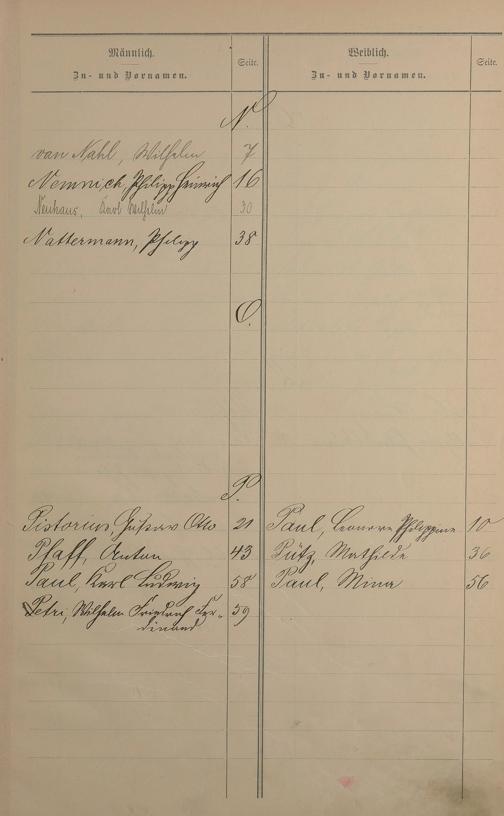 Männlich.
Zu- und Vornamen.
Seite.
Weiblich.
Zu- und Vornamen.
Seite.
N.
van Nahl, Wilhelm 7
Nemnich, Philipp Heinrich 16
Neuhaus, Karl Wilhelm 30
Nattermann, Philipp 38
O.
P.
Pistorius, Gustav Otto 21
Paul, Leonore Philippine 10
Pfaff, Anton 43
Pütz, Mathilde 36
Paul, Karl Ludwig 58
Paul, Mina 56
Petri, Wilhelm Friedrich Fer- 59
dinand